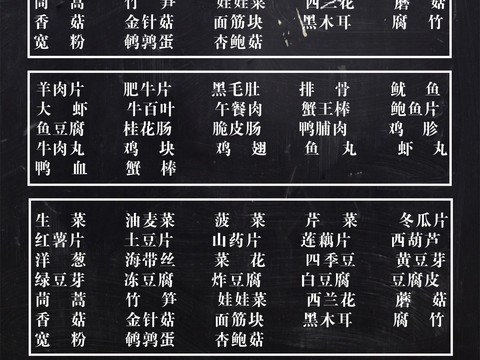 茼 蒿 竹 笋 娃娃菜 西兰花 蘑 菇
香 菇 金针菇 面筋块 黑木耳 腐 竹
宽 粉 鹌鹑蛋 杏鲍菇
羊肉片 肥牛片 黑毛肚 排 骨 鱿 鱼
大 虾 牛百叶 午餐肉 蟹王棒 鲍鱼片
鱼豆腐 桂花肠 脆皮肠 鸭脯肉 鸡 胗
牛肉丸 鸡 块 鸡 翅 鱼 丸 虾 丸
鸭 血 蟹 棒
生 菜 油麦菜 菠 菜 芹 菜 冬瓜片
红薯片 土豆片 山药片 莲藕片 西葫芦
洋 葱 海带丝 菜 花 四季豆 黄豆芽
绿豆芽 冻豆腐 炸豆腐 白豆腐 豆腐皮
茼 蒿 竹 笋 娃娃菜 西兰花 蘑 菇
香 菇 金针菇 面筋块 黑木耳 腐 竹
宽 粉 鹌鹑蛋 杏鲍菇